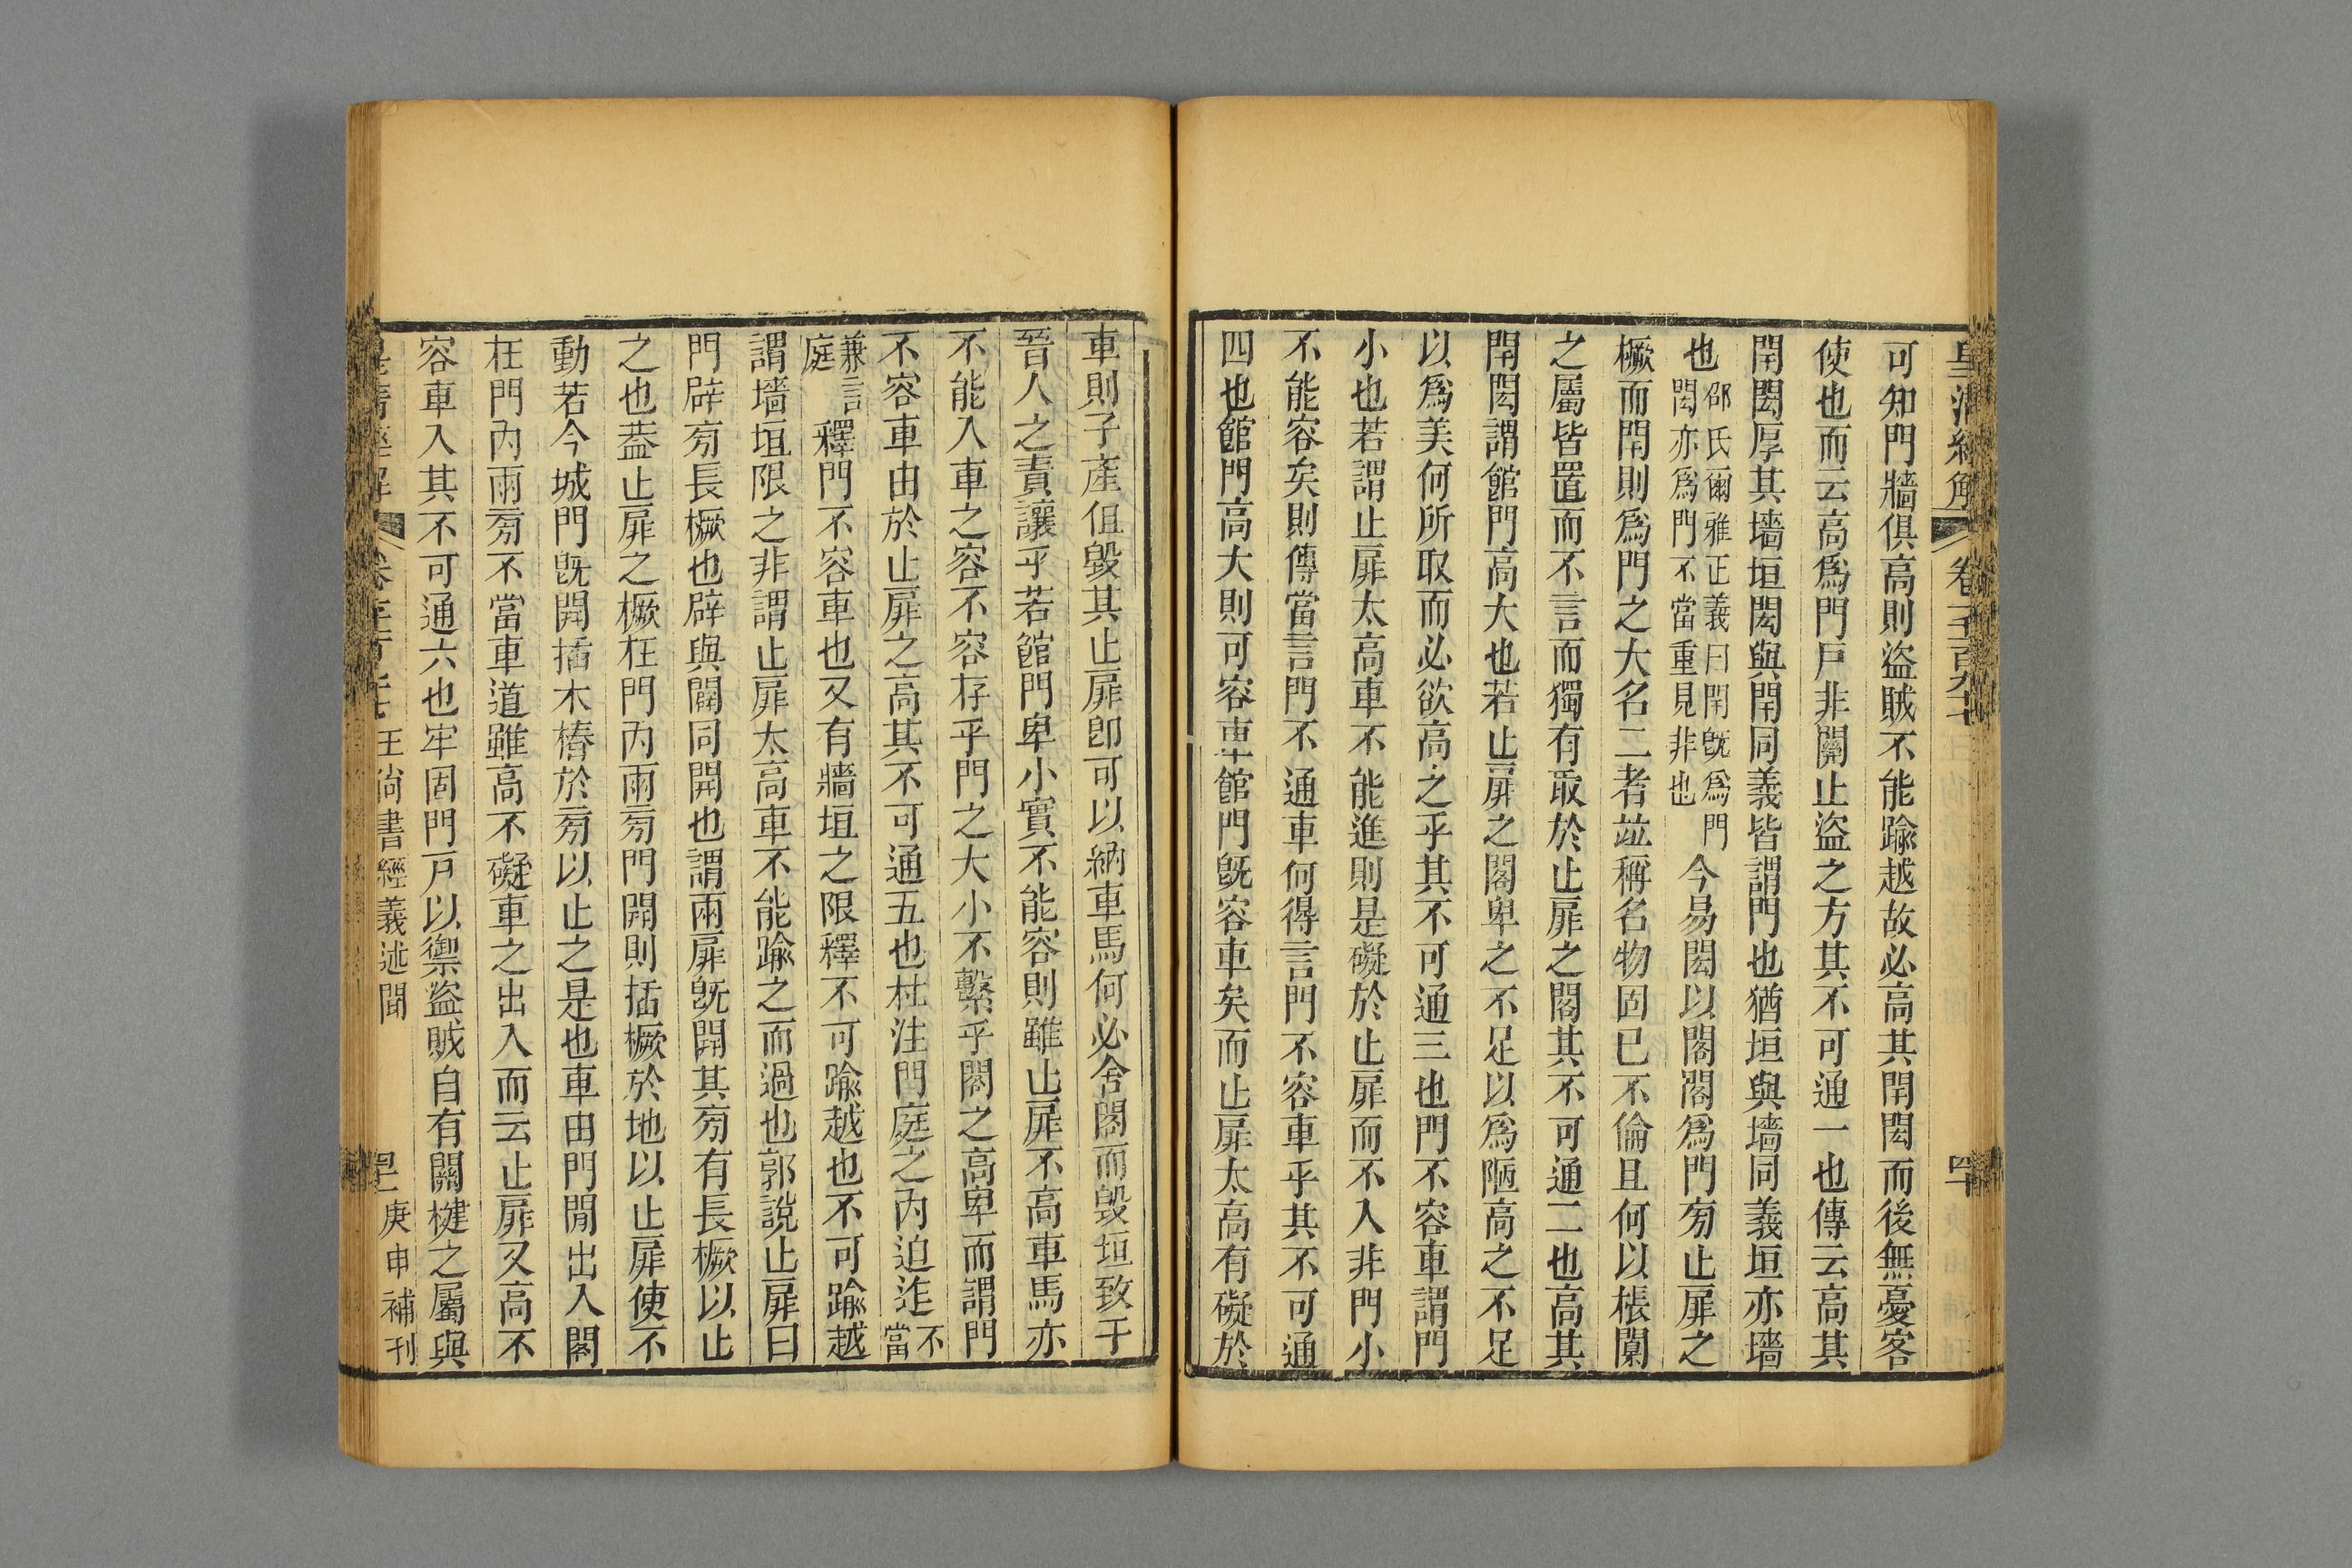 皇清經解 卷千百九十 四十
可知門牆俱高則盜賊不能踰越故必高其閈閎而後無憂客
使也而云高爲門戶非關止盜之方其不可通一也傳云高其
閈閎厚其墻垣閎與閈同義皆謂門也猶垣與墻同義垣亦墻
也邵氏爾雅正義曰閈旣爲門閎亦爲門不當重見非也今易閎以閣閣爲門旁止扉之
橛而閈則爲門之大名二者竝稱名物固已不倫且何以棖闑
之屬皆置而不言而獨有取於止扉之閣其不可通二也高其
閈閎謂館門高大也若止扉之閣卑之不足以爲陋高之不足
以爲美何所取而必欲高之乎其不可通三也門不容車謂門
小也若謂止扉太高車不能進則是礙於止扉而不入非門小
不能容矣則傳當言門不通車何得言門不容車乎其不可通
四也館門高大則可容車館門旣容車矣而止扉太高有礙於
車則子產但毀其止扉卽可以納車馬何必舍閣而毀垣致于
晉人之責讓乎若館門卑小實不能容則雖止扉不高車馬亦
不能入車之容不容存乎門之大小不繫乎閣之高卑而謂門
不容車由於止扉之高其不可通五也杜注門庭之內迫迮不當
兼言庭釋門不容車也又有牆垣之限釋不可踰越也不可踰越
謂墻垣限之非謂止扉太高車不能踰之而過也郭說止扉曰
門辟旁長橛也辟與闢同開也謂兩扉旣開其旁有長橛以止
之也葢止扉之橛在門內兩旁門開則插橛於地以止扉使不
動若今城門旣開插木樁於旁以止之是也車由門閒出入閣
在門內兩旁不當車道雖高不礙車之出入而云止扉又高不
容車入其不可通六也牢固門戶以禦盜賊自有關楗之屬與
皇清經解 王尙書經義述聞 庚申補刊